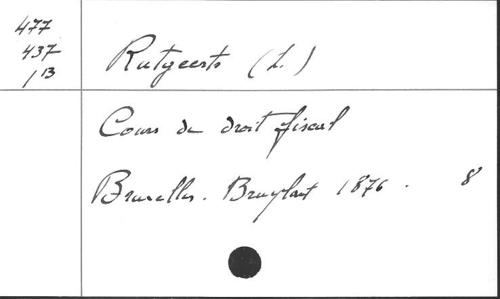 477
437
1 B
Rutgeerts (L.)
Cours de droit fiscal
Bruxelles. Bruylant 1876. 8